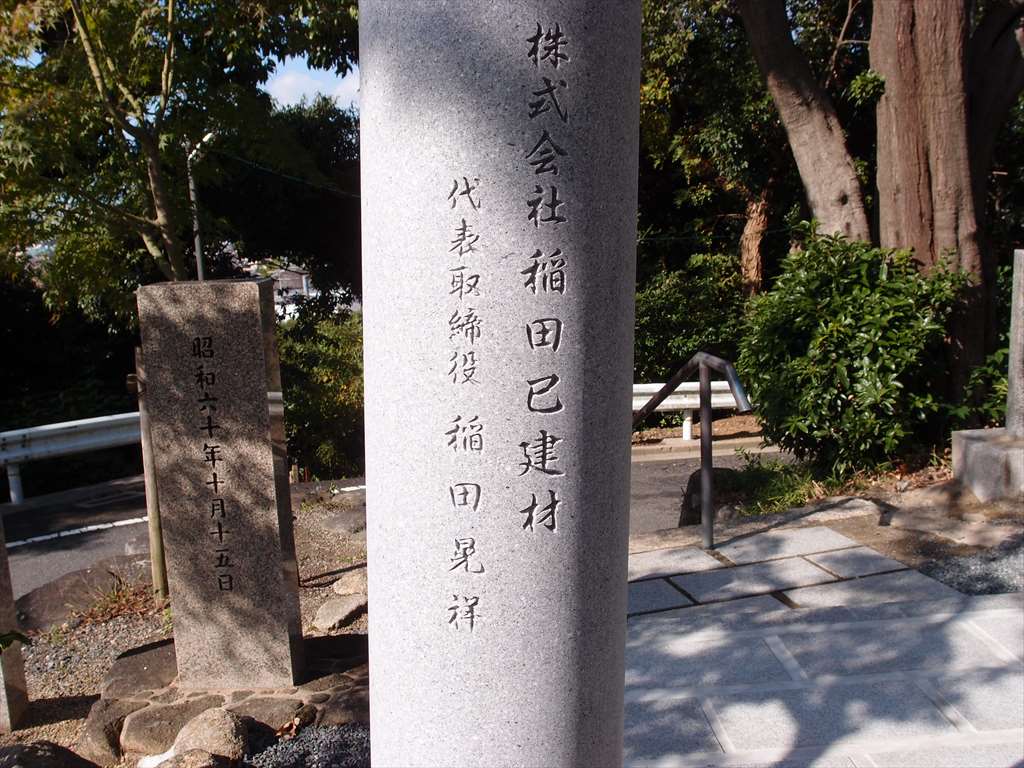 株式会社稲田已建材
代表取締役 稲田晃祥
昭和六十年十月十五日